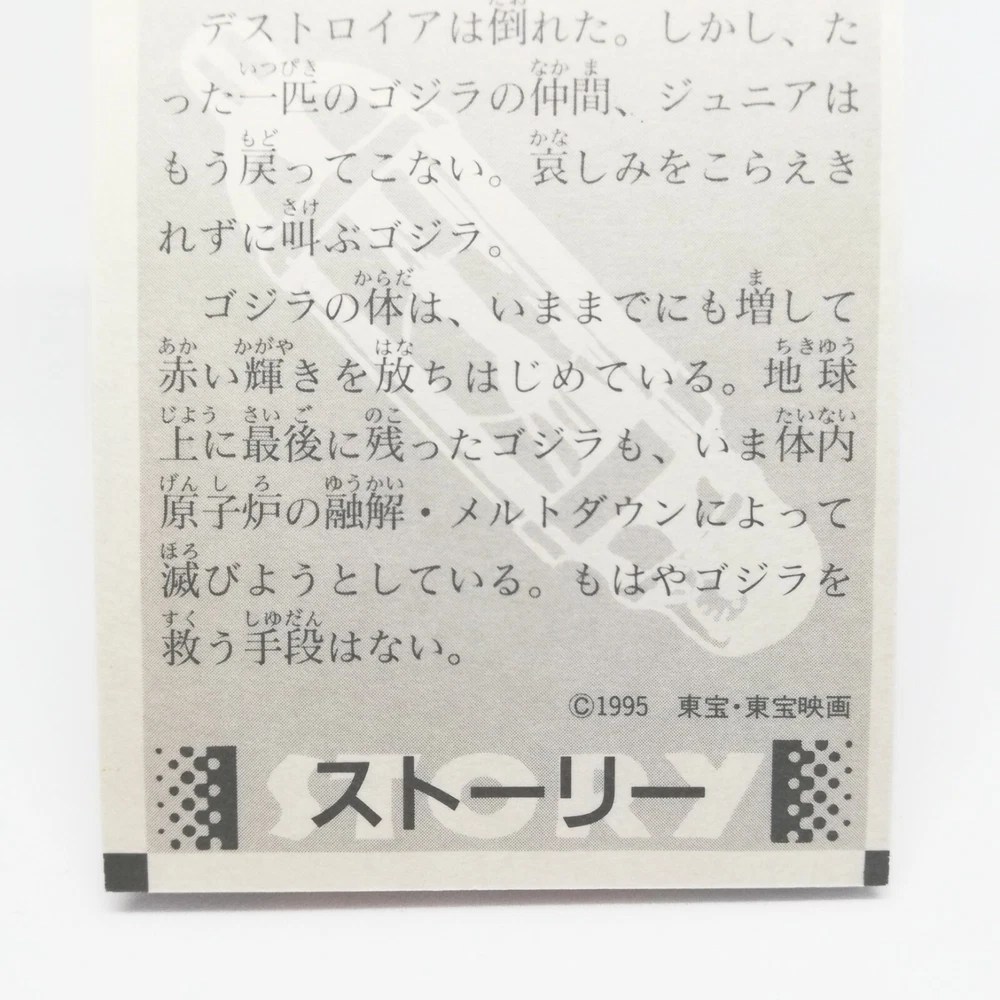 デストロイアは倒れた。しかし、た
った一匹のゴジラの仲間、ジュニアは
もう戻ってこない。哀しみをこらえき
れずに叫ぶゴジラ。
ゴジラの体は、いままでにも増して
赤い輝きを放ちはじめている。地球
上に最後に残ったゴジラも、いま体内
原子炉の融解・メルトダウンによって
滅びようとしている。もはやゴジラを
救う手段はない。
©1995 東宝・東宝映画
STORY
ストーリー